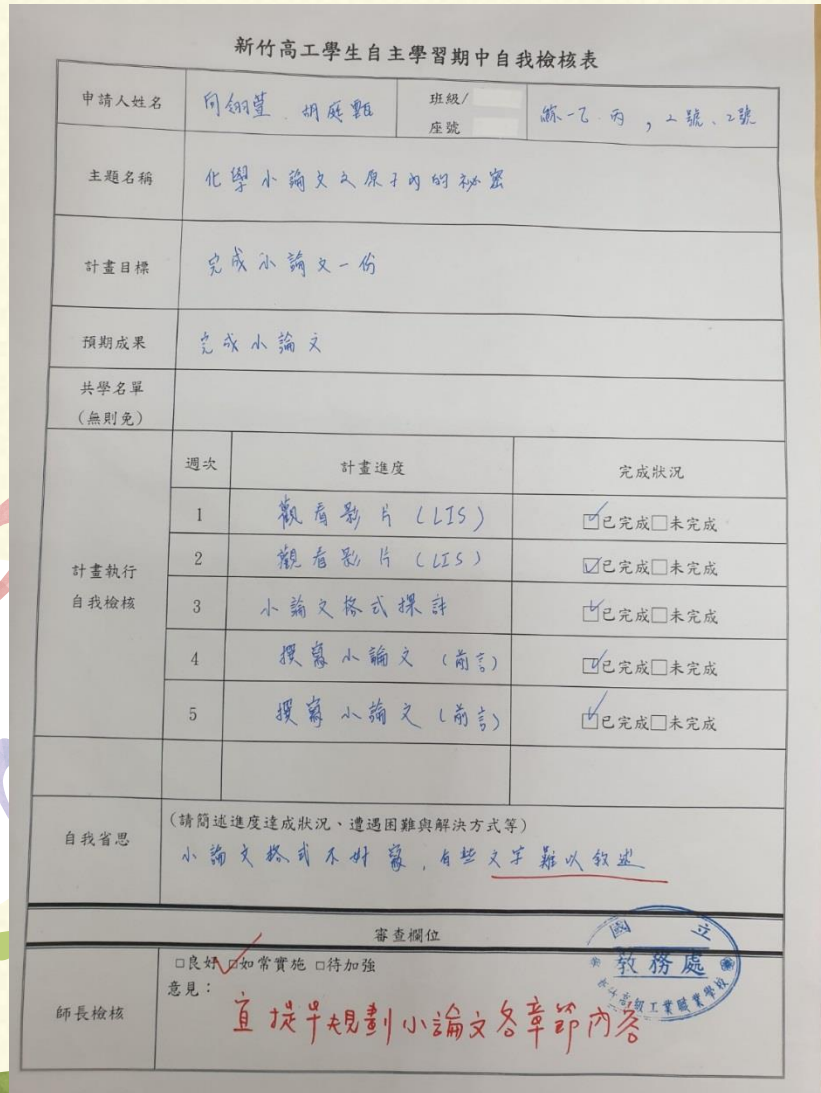 新竹高工學生自主學習期中自我檢核表
申請人姓名 向翎萱、胡庭甄 班級/座號 綜一乙、丙，2號、2號
主題名稱 化學小論文之原子內的祕密
計畫目標 完成小論文一份
預期成果 完成小論文
共學名單
(無則免)
計畫執行
自我檢核
週次 計畫進度 完成狀況
1 觀看影片(LIS) ☑已完成□未完成
2 觀看影片(LIS) ☑已完成□未完成
3 小論文格式探討 ☑已完成□未完成
4 撰寫小論文(前言) ☑已完成□未完成
5 撰寫小論文(前言) ☑已完成□未完成
自我省思
(請簡述進度達成狀況、遭遇困難與解決方式等)
小論文格式不好寫，有些文字難以敘述
審查欄位
師長檢核
□良好 ☑如常實施 □待加強
意見：
宜提早規劃小論文各章節內容
國立
教務處
高級工業職業學校